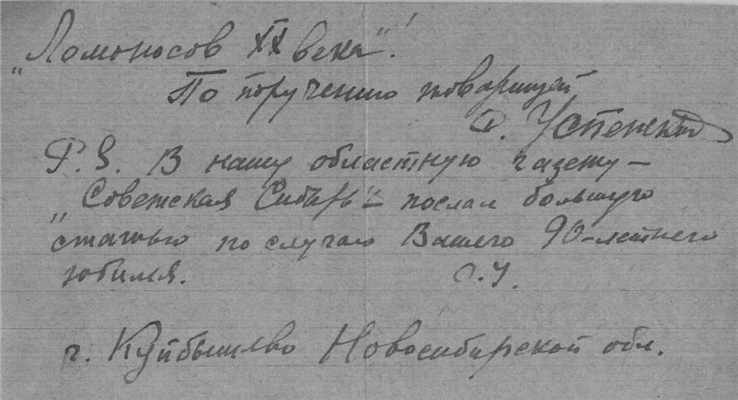 „Ломоносов XX века"!
По поручению товарищей
Успенский
P.S. В нашу областную газету —
„Советская Сибирь" — послал большую
статью по случаю Вашего 90-летнего
юбилея. О.У.
г. Куйбышево Новосибирской обл.